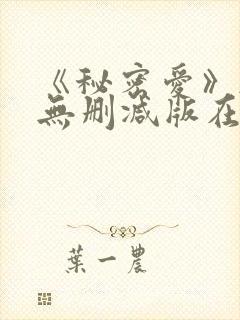 《秘密爱》
無删减版在
葉一農